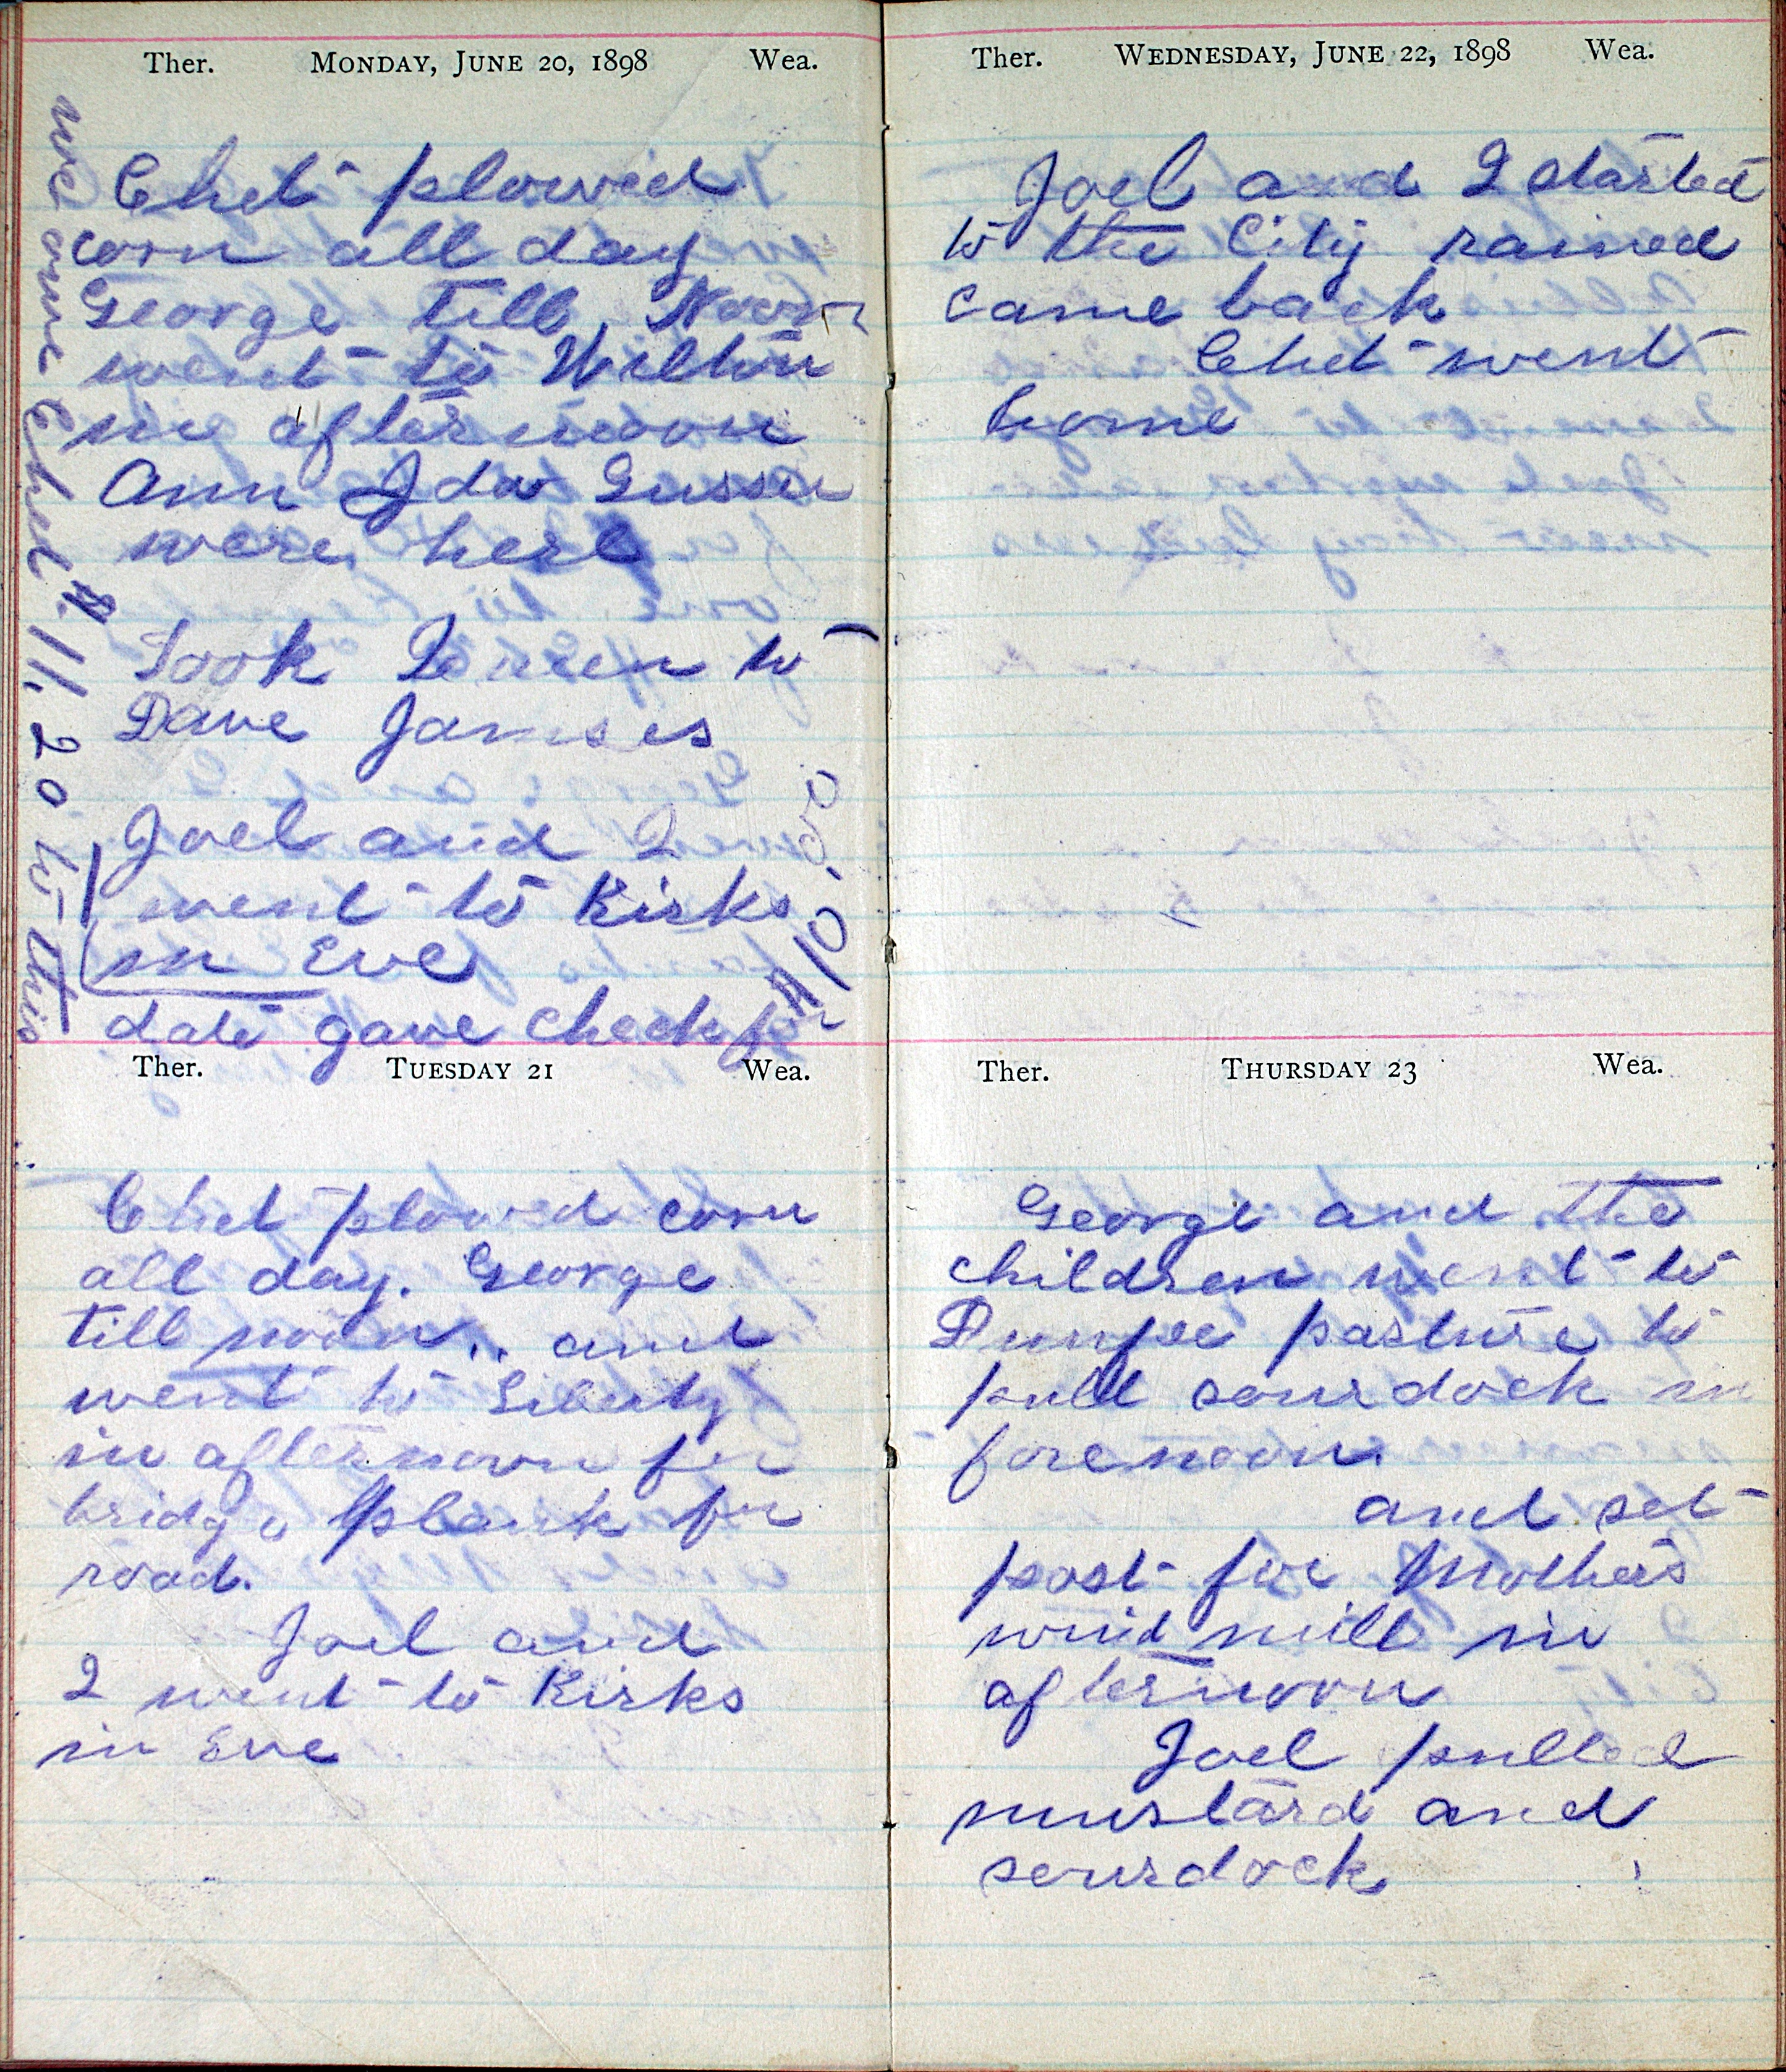 Ther. MONDAY, JUNE 20, 1898 Wea.
Chet plowed
corn all day
George till Noon
went to Wilton
in afternoon
Ann Ida Gussie
were here
Took Queen to
Dave Jameses
Joel and I
went to Kirks
in Eve
we owe Chet $11.20 to this
date gave check for
$10.50
Ther. TUESDAY 21 Wea.
Chet plowed corn
all day. George
till noon.. and
went to Liberty
in afternoon for
bridge plank for
road.
Joel and
I went to Kirks
in Eve
Ther. WEDNESDAY, JUNE 22, 1898 Wea.
Joel and I started
to the City rained
came back
Chet went
home
Ther. THURSDAY 23 Wea.
George and the
children went to
pasture to
pull sourdock in
forenoon
and set
post for Mothers
wind mill in
afternoon
Joel pulled
mustard and
sourdock